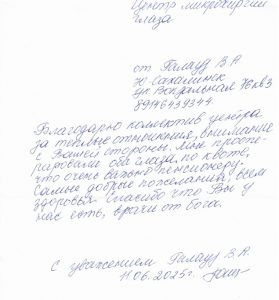 Центр микрохирургии
глаза
от Галауз В.А
Ю-Сахалинск
ул. Вокзальная 76 кв 3
89146439344
Благодарю коллектив центра
за теплые отношения, внимание
с Вашей стороны. Мне проопе-
рировали оба глаза, по квоте,
что очень важно пенсионеру.
Самые добрые пожелания всем
здоровья. Спасибо что Вы у
нас есть, врачи от бога.
С уважением Галауз В.А.
11.06.2025г.